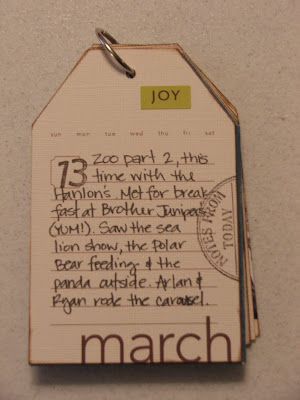 JOY
sun mon tue wed thu fri sat
13 Zoo part 2, this
time with the
Hanlon's. Met for break-
fast at Brother Junipers
(YUM!). Saw the sea
lion show, the Polar
Bear feeding & the
panda outside. Arlan &
Ryan rode the carousel.
NOTES FROM
TODAY
march